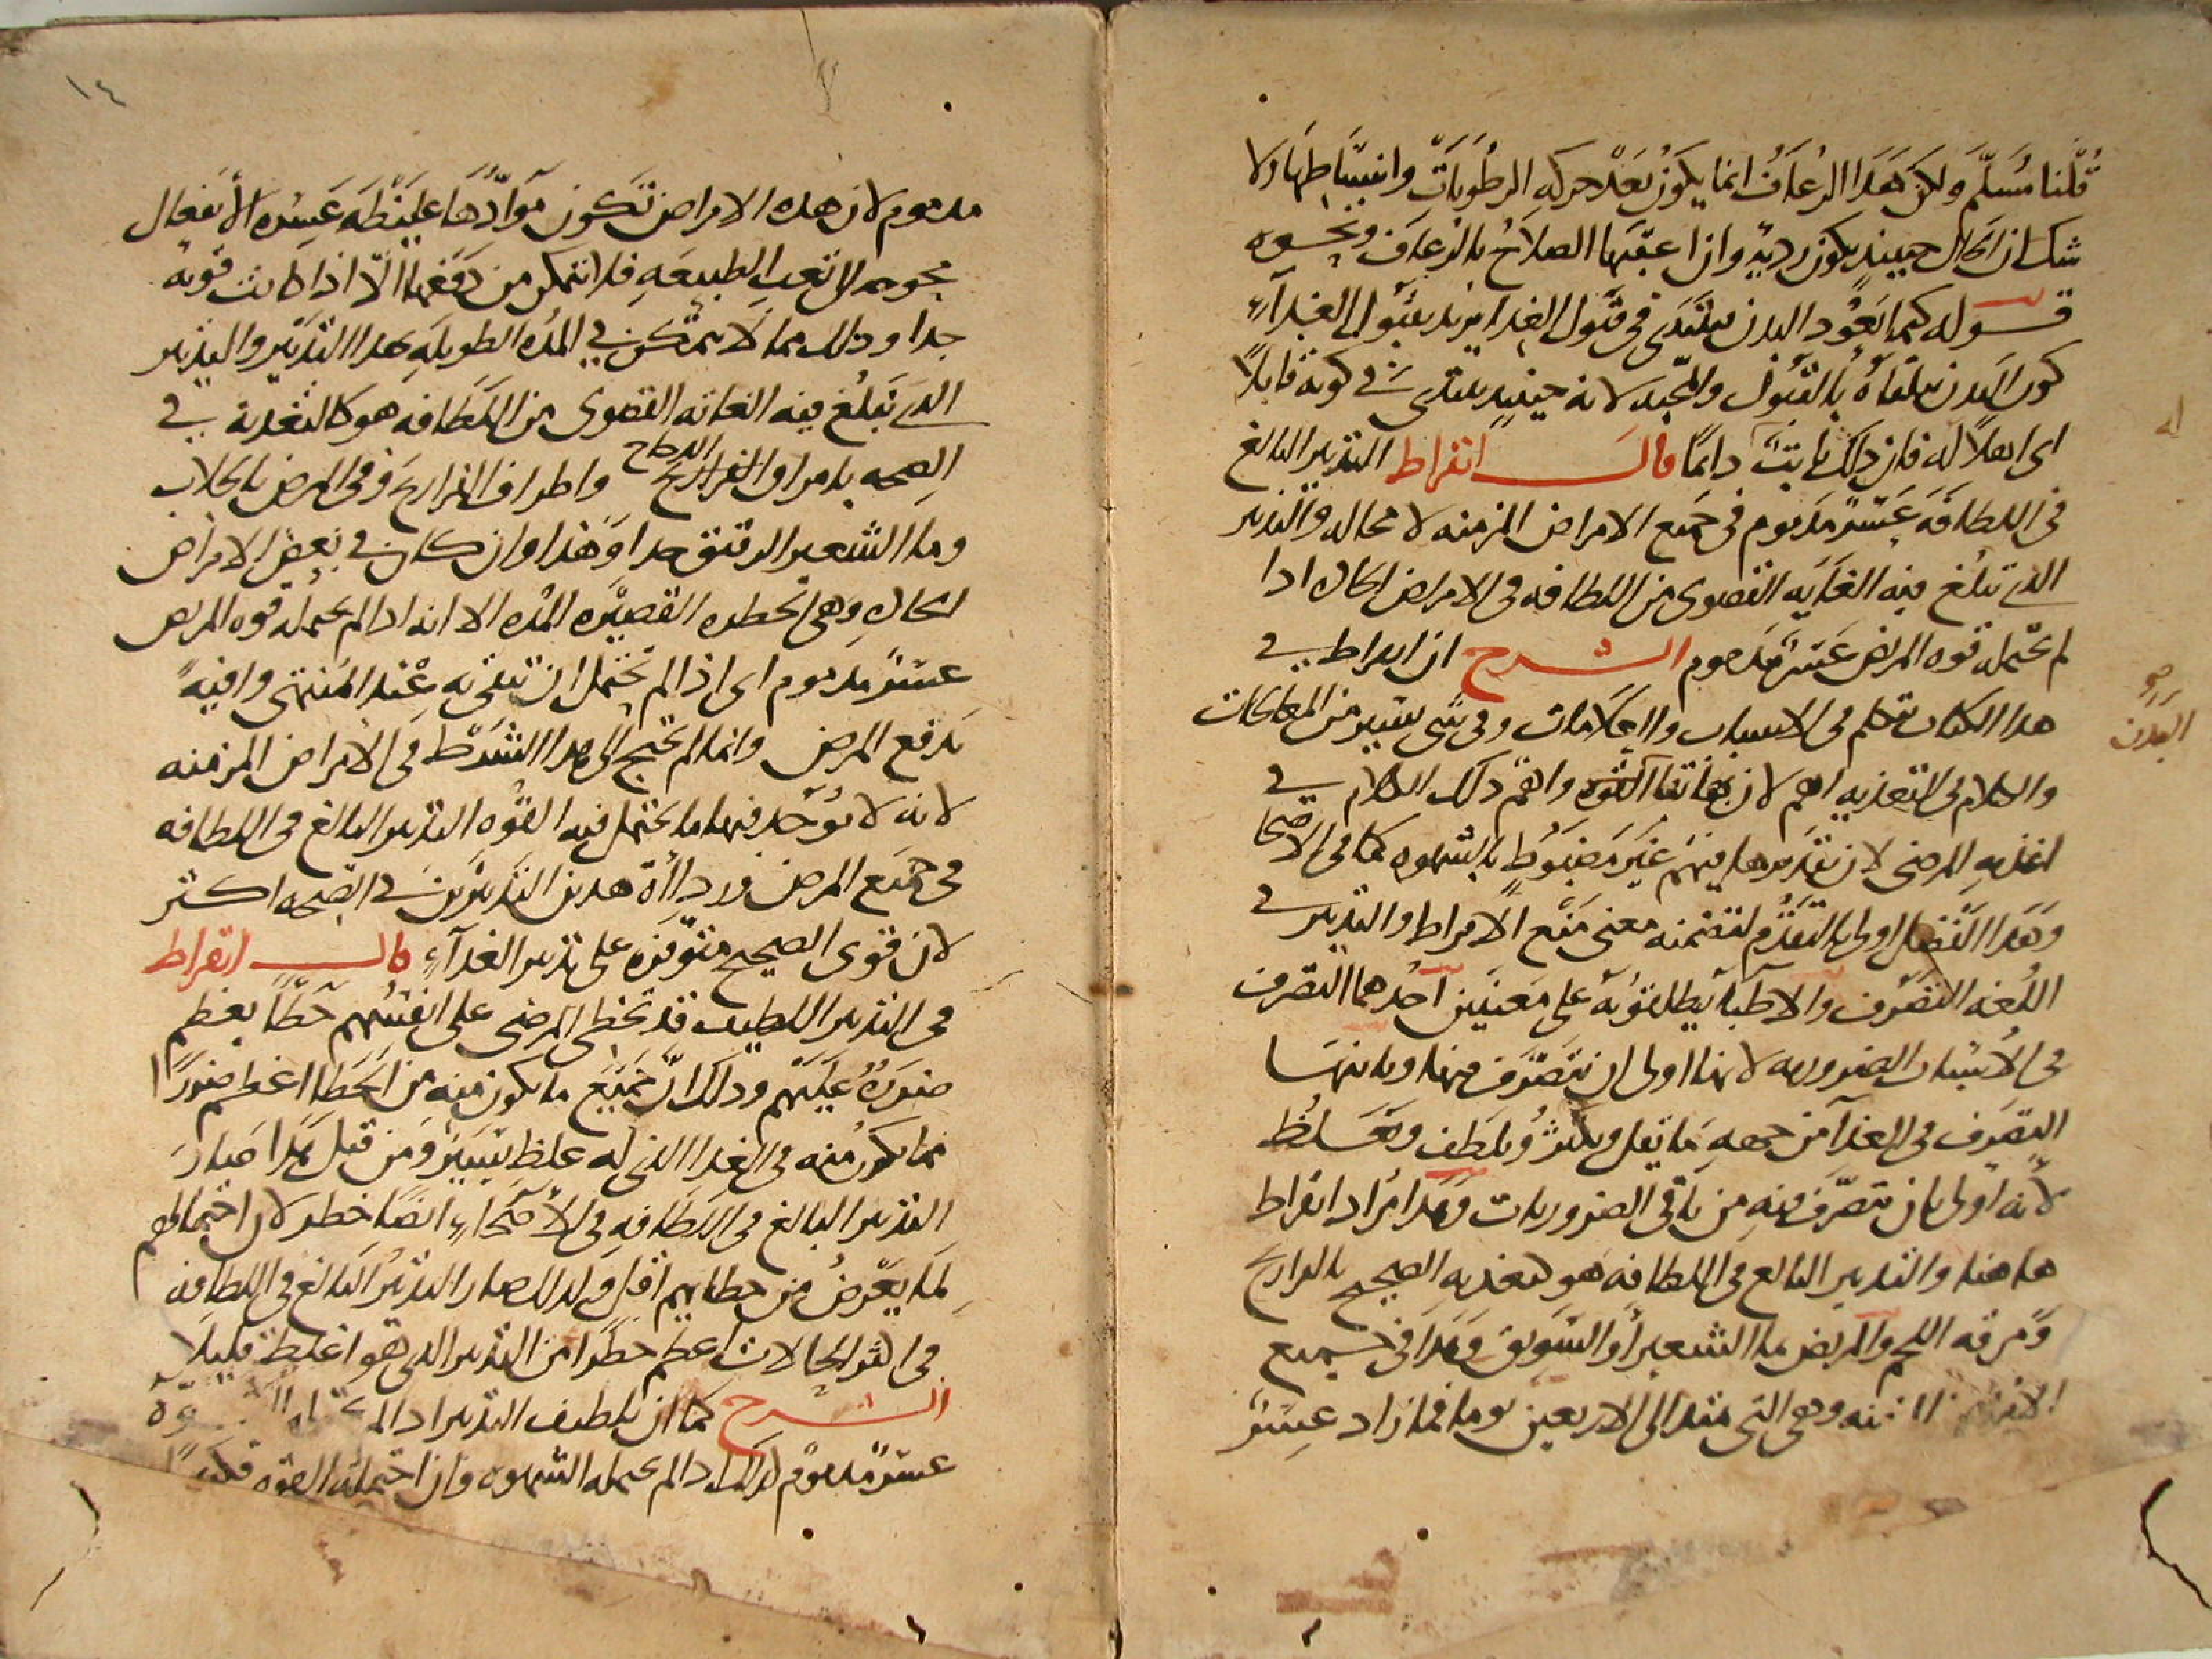 قلنا مسلم ولكن هذا الرعاف انما يكون بعد حركه الرطوبات وانبساطها ولا
شك ان الحال حينيذ يكون رديه وان اعقبها الصلاح بالرعاف ونحوه
قوله كما يعود البدن يبتدى فى قبول الغذا يريد بقبول الغدآء
كون البدن يلقاه بالقبول والمحبه لانه حينيذ يبتدى فى كونه قابلا
اى اهلا له فان ذلك ثابت دايما قال ابقراط التدبير البالغ
فى اللطافه عسر مذموم فى جميع الامراض المزمنه لا محاله والتدبير
الذى تبلغ فيه الغايه القصوى من اللطافه فى الامراض الحاده اذا
لم تحتمله قوه المريض عسر مذموم الشرح ان ابقراط فى
هذا الكتاب تكلم فى الاسباب والعلامات وفى شى يسير من المعالجات
والكلام فى التغذيه اهم لان بها بقا القوه واهم ذلك الكلام فى
اغذيه المرضى لان تقديرها فيهم غير مضبوط بالشهوه كما فى الاصحا
وهذا الفصل اولى بالتقدم لتضمنه معنى منع الافراط والتدبير فى
اللغه التصرف والاطبآ يطلقونه على معنيين احدهما التصرف
فى الاسباب الضروريه لانها اولى ان يتصرف فيها وثانيهما
التصرف فى الغذآ من جهه ما يقل ويكثر ويلطف ويغلظ
لأنه اولى بان يتصرف فيه من باقى الضروريات وهذا مراد ابقراط
هاهنا والتدبير البالغ فى اللطافه هو كتغذيه الصحيح بالفراريج
ومرقه اللحم والمريض بما الشعير أو السويق وهذا فى جميع
الامراض المزمنه وهى التى تمتد الى الاربعين يوما فما زاد عسر
البدن
١٤
مذموم لان هذه الامراض تكون موادها غليظه عسره الأنفعال
محوجه الى تعب الطبيعه فلا تتمكن من دفعها الا اذا كانت قويه
جدا وذلك مما لا يمكن فى المده الطويله بهذا التدبير والتدبير
الذى تبلغ فيه الغايه القصوى من اللطافه هو كالتغذيه فى
الصحه بامراق الفراريج واطراف الفراريج وفى المرض بالجلاب
وما الشعير الرقيق جدا وهذا وان كان فى بعض الامراض
الحاده وهى الخطره القصيره المده الا انه اذا لم تحتمله قوه المريض
عسر مذموم اى اذا لم تحتمل ان تبقى به عند المنتهى وافيه
بدفع المرض وانما لم يحتج الى هذا الشرط فى الامراض المزمنه
لانه لا يوجد فيها ما يحتمل فيه القوه التدبير البالغ فى اللطافه
فى جميع المرض ورداأة هذين التدبيرين فى الصحه اكثر
لان قوى الصحيح متوفره على تدبير الغدآء قال ابقراط
فى التدبير اللطيف قد تخطى المرضى على انفسهم خطأ يعظم
ضرره عليهم وذلك ان جميع ما يكون منه من الخطا اعظم ضررا
مما يكون منه فى الغذا الذى له غلظ يسير ومن قبل هذا صار
التدبير البالغ فى اللطافه فى الأصحاء ايضا خطر لان احتمالهم
لما يعرض من خطايهم اقل ولذلك صار التدبير البالغ فى اللطافه
فى اكثر الحالات اعظم خطرا من التدبير الذى هو اغلظ قليلا
الشرح كما ان تلطيف التدبير اذا لم القوه
عسر مذموم كذلك اذا لم تحتمله الشهوه وان احتملته القوه